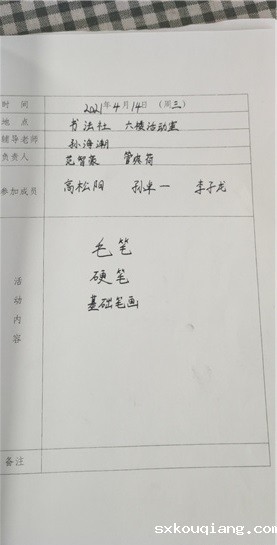 时 间 2021年4月14日（周三）
地 点 书法社 六楼活动室
辅导老师 孙海潮
负责人 范智豪
参加成员 高松阳 孙卓一 李子龙
活动内容
毛笔
硬笔
基础笔画
备注
sxkouqiang.com